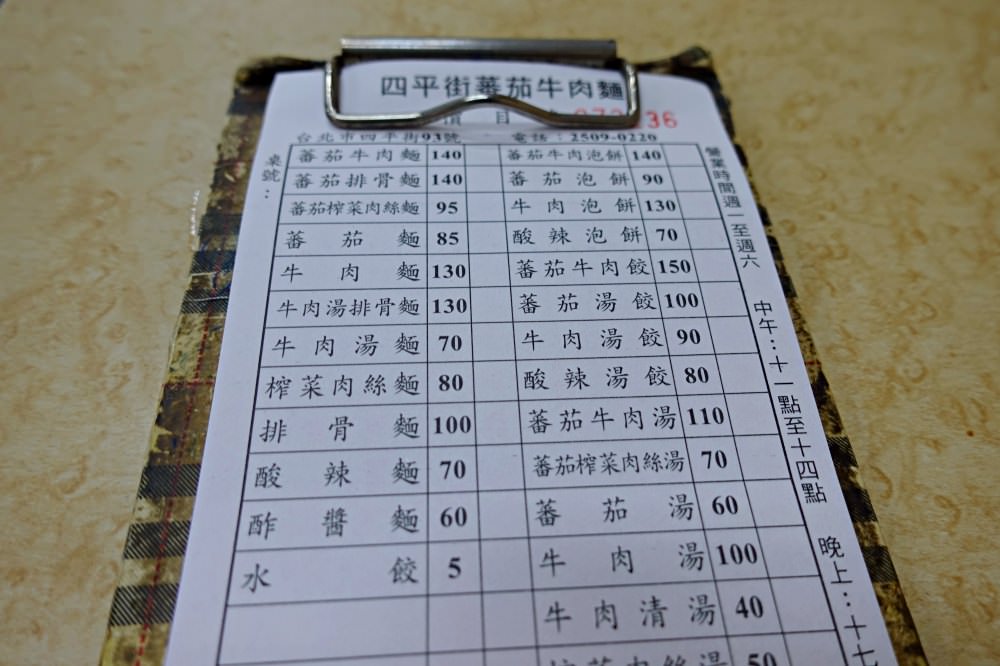 四平街蕃茄牛肉麵
目
36
台北市四平街93號 電話：2509-0220
桌號：
蕃茄牛肉麵 140 蕃茄牛肉泡餅 140
蕃茄排骨麵 140 蕃茄泡餅 90
蕃茄榨菜肉絲麵 95 牛肉泡餅 130
蕃茄麵 85 酸辣泡餅 70
牛肉麵 130 蕃茄牛肉餃 150
牛肉湯排骨麵 130 蕃茄湯餃 100
牛肉湯麵 70 牛肉湯餃 90
榨菜肉絲麵 80 酸辣湯餃 80
排骨麵 100 蕃茄牛肉湯 110
酸辣麵 70 蕃茄榨菜肉絲湯 70
酢醬麵 60 蕃茄湯 60
水餃 5 牛肉湯 100
牛肉清湯 40
榨菜肉絲湯 50
營業時間週一至週六 中午：十一點至十四點 晚上：十七